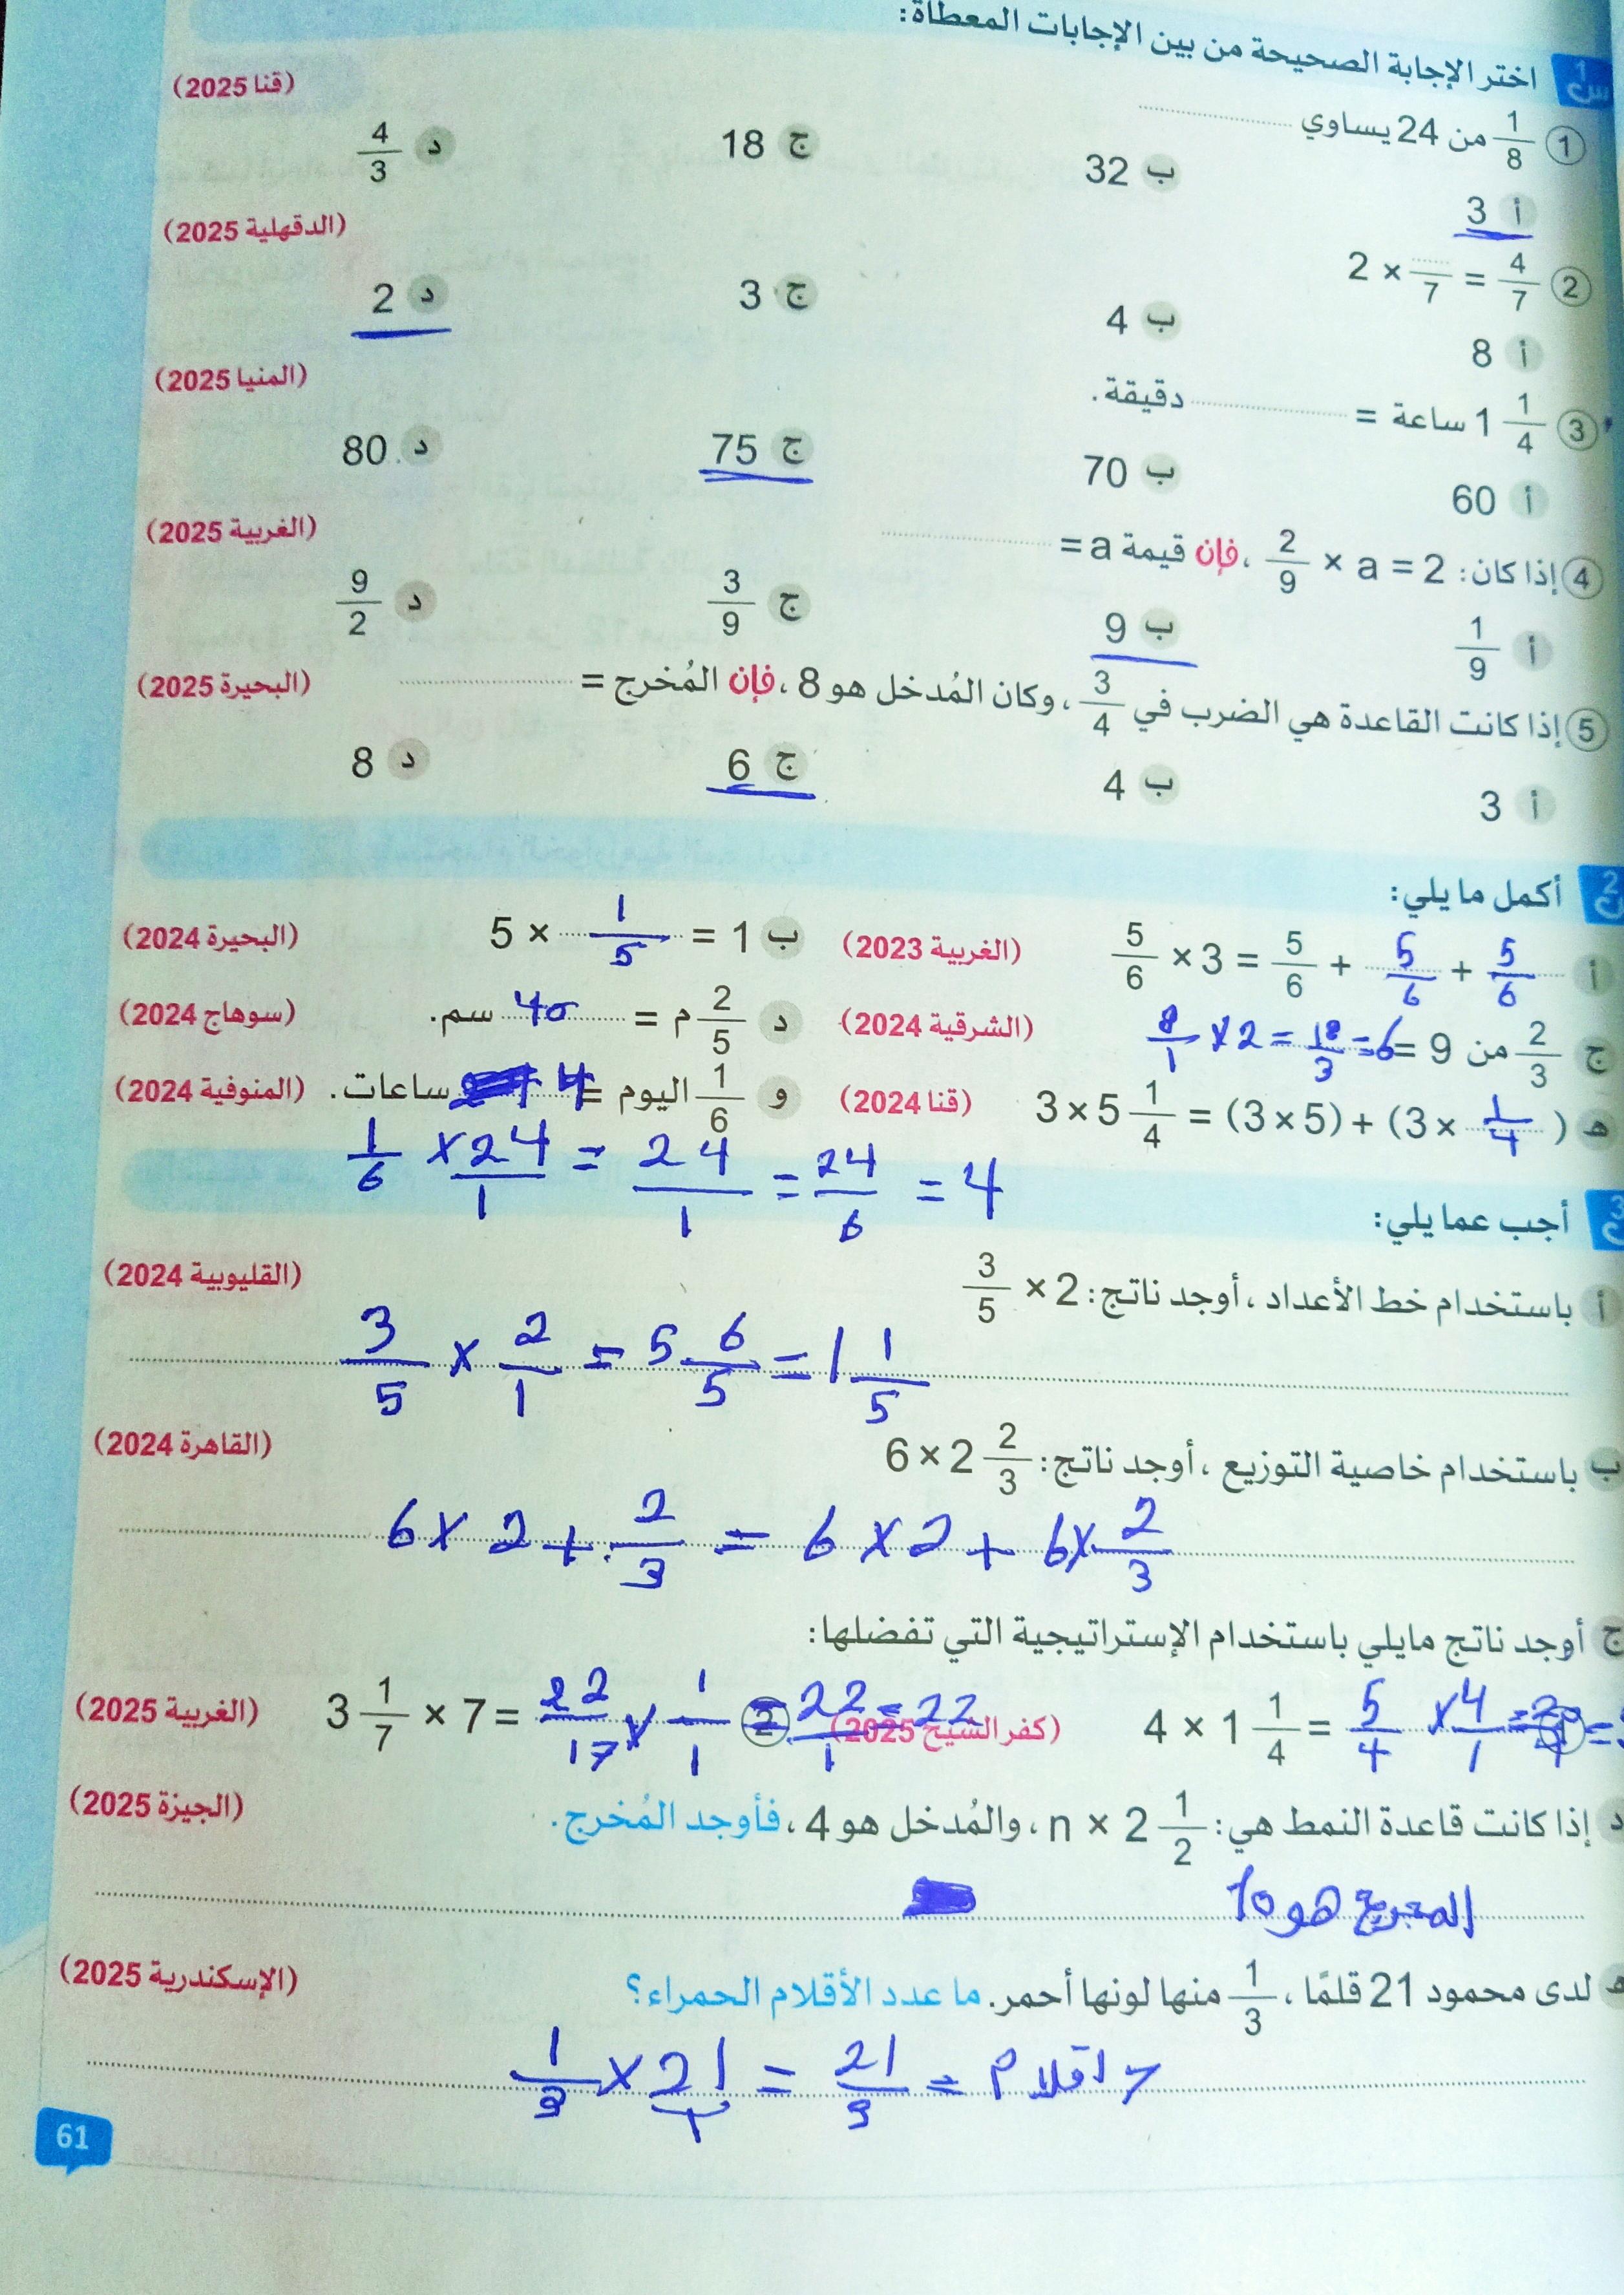 س1 اختر الإجابة الصحيحة من بين الإجابات المعطاة:
① 1/8 من 24 يساوي ........ (قنا 2025)
أ 3 ب 32 ج 18 د 4/3
② 2 × ...../7 = 4/7 (الدقهلية 2025)
أ 8 ب 4 ج 3 د 2
③ 1 1/4 ساعة = ........ دقيقة. (المنيا 2025)
أ 60 ب 70 ج 75 د 80
④ إذا كان: 2/9 × a = 2 ، فإن قيمة a = ........ (الغربية 2025)
أ 1/9 ب 9 ج 3/9 د 9/2
⑤ إذا كانت القاعدة هي الضرب في 3/4 ، وكان المُدخل هو 8 ، فإن المُخرج = ........ (البحيرة 2025)
أ 3 ب 4 ج 6 د 8
2 أكمل ما يلي:
أ 5/6 × 3 = 5/6 + 5/6 + 5/6 (الغربية 2023)
ب 5 × 1/5 = 1 (البحيرة 2024)
ج 2/3 من 9 = /1 × 2 = 18/3 = 6 (الشرقية 2024)
د 2/5 م = 40 سم. (سوهاج 2024)
هـ 3 × 5 1/4 = (3 × 5) + (3 × 1/4) (قنا 2024)
و 1/6 اليوم = 4 ساعات. (المنوفية 2024)
1/6 × 24/1 = 24/1 = 24/6 = 4
3 أجب عما يلي:
أ باستخدام خط الأعداد ، أوجد ناتج: 3/5 × 2 (القليوبية 2024)
3/5 × 2/1 = 5 6/5 = 1 1/5
ب باستخدام خاصية التوزيع ، أوجد ناتج: 6 × 2 2/3 (القاهرة 2024)
6 × 2 + 2/3 = 6 × 2 + 6 × 2/3
ج أوجد ناتج مايلي باستخدام الإستراتيجية التي تفضلها:
① 4 × 1 1/4 = 5/4 × 4/1 = (كفر الشيخ 2025)
② 3 1/7 × 7 = 22/17 × 1/1 = 22/1 = 22 (الغربية 2025)
د إذا كانت قاعدة النمط هي: n × 2 1/2 ، والمُدخل هو 4 ، فأوجد المُخرج. (الجيزة 2025)
المخرج هو 10
هـ لدى محمود 21 قلمًا ، 1/3 منها لونها أحمر. ما عدد الأقلام الحمراء؟ (الإسكندرية 2025)
1/3 × 21/1 = 21/3 = 7 اقلام
61